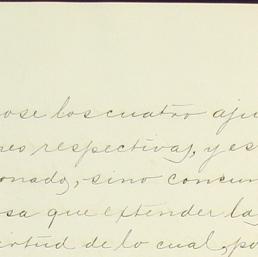 ose los cuatro aju
res respectivas, y es
onado, sino concur
sa que extender las
irtud de lo cual, po